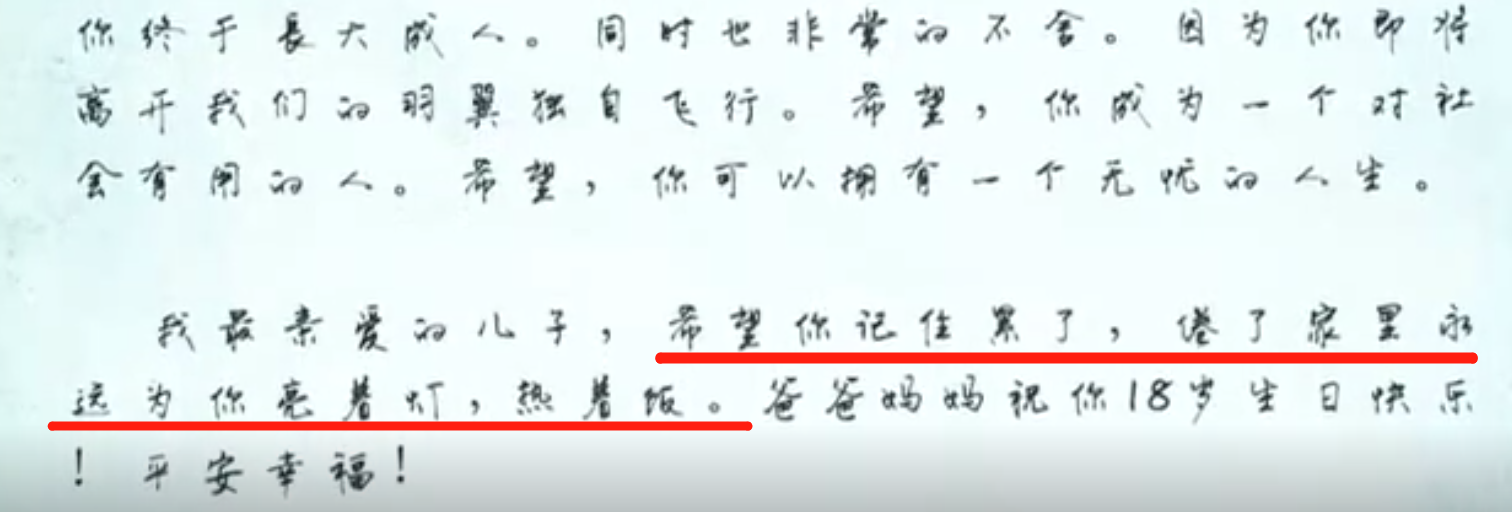 你终于長大成人。同时也非常的不舍。因为你即将
离开我们的羽翼独自飞行。希望，你成为一个对社
会有用的人。希望，你可以拥有一个无忧的人生。
我最亲爱的儿子，希望你记住累了，倦了家里永
远为你亮着灯，热着饭。爸爸妈妈祝你18岁生日快乐
！平安幸福！